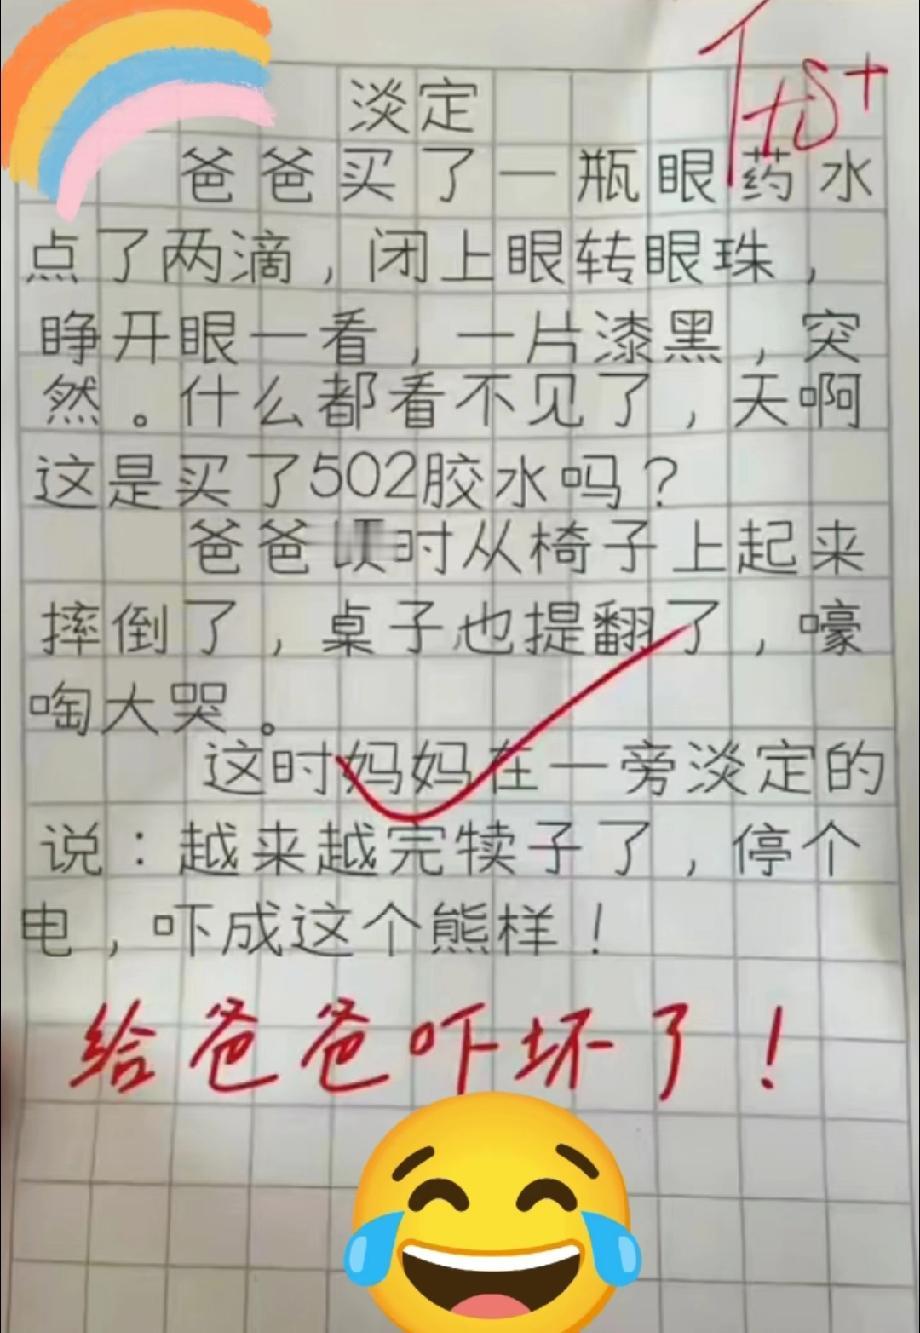 淡定
爸爸买了一瓶眼药水
点了两滴，闭上眼转眼珠，
睁开眼一看，一片漆黑，突
然。什么都看不见了，天啊
这是买了502胶水吗？
爸爸顷时从椅子上起来
摔倒了，桌子也提翻了，嚎
啕大哭。
这时妈妈在一旁淡定的
说：越来越完犊子了，停个
电，吓成这个熊样！
给爸爸吓坏了！